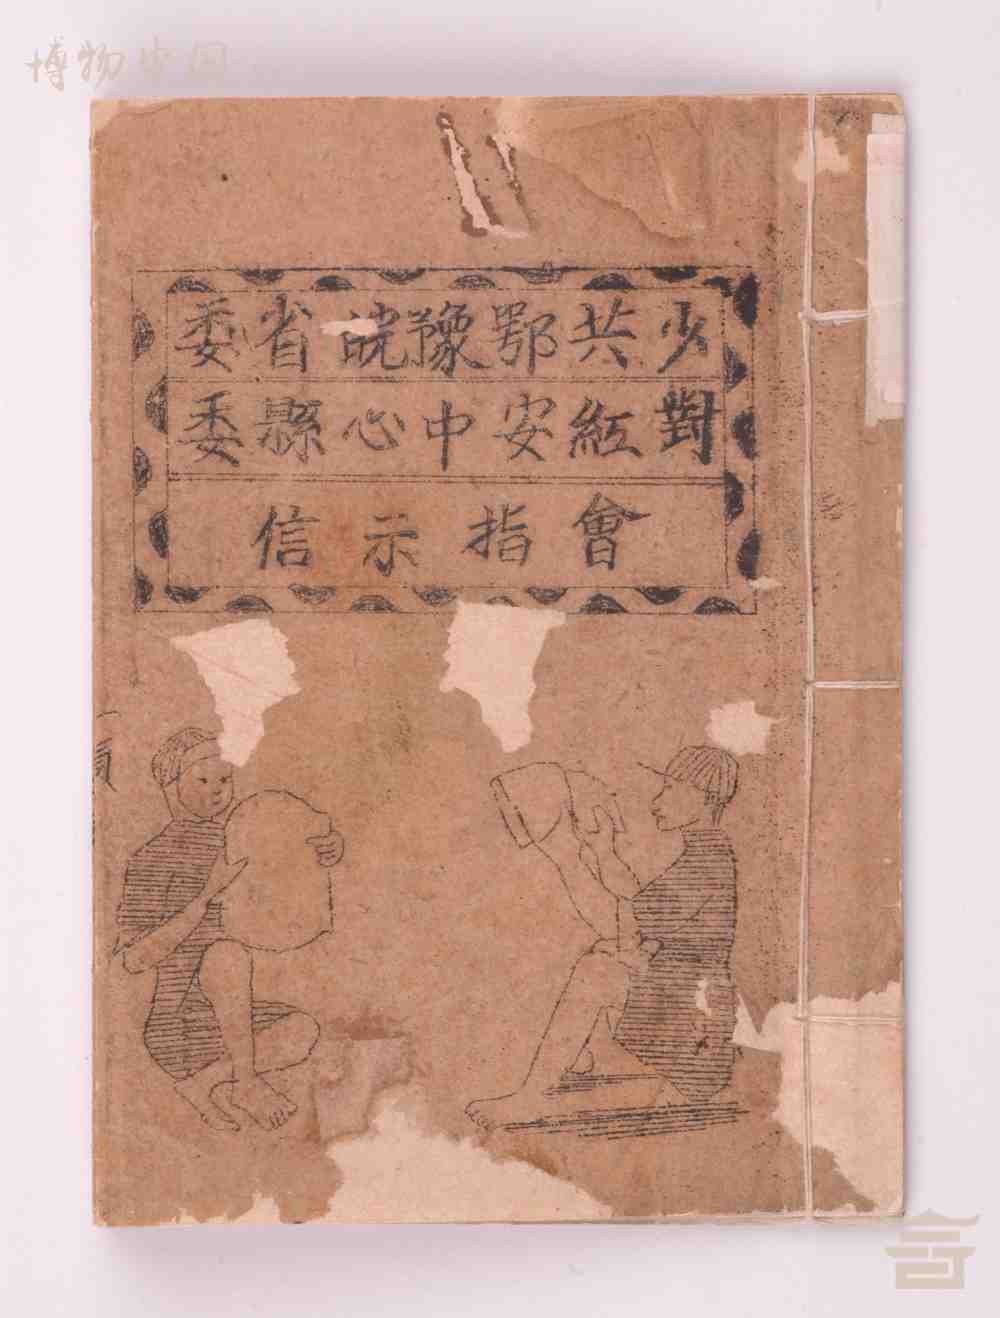 博物中国
少共鄂豫皖省委
對紅安中心縣委
會指示信